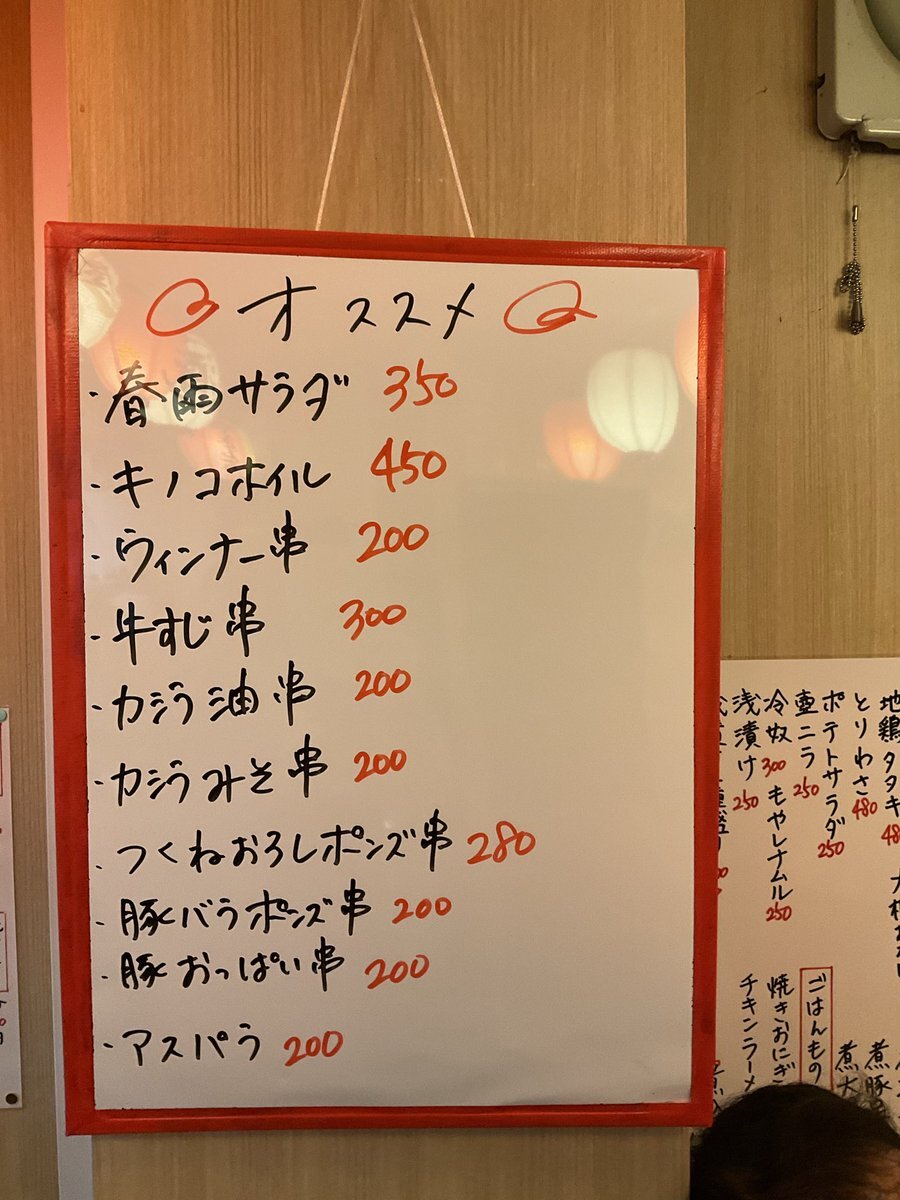 オススメ
・春雨サラダ 350
・キノコホイル 450
・ウィンナー串 200
・牛すじ串 300
・カシラ油串 200
・カシラみそ串 200
・つくねおろしポンズ串 280
・豚バラポンズ串 200
・豚おっぱい串 200
・アスパラ 200
地鶏タタキ
とりわさ 480
ポテトサラダ 250
壺ニラ 250
冷奴 300
もやしナムル 250
浅漬け 250
ごはんもの
焼きおにぎ
チキンラーメ